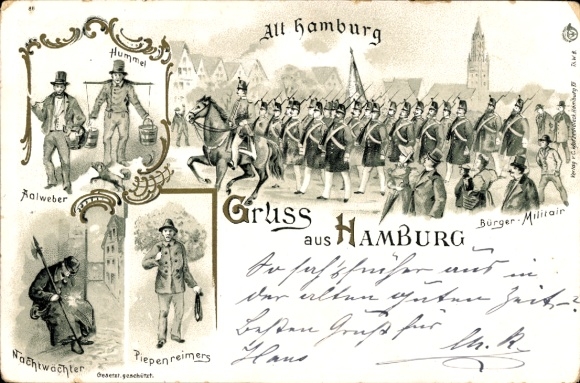 Alt Hamburg
Hummel
Aalweber
Bürger-Militair
Gruss
aus Hamburg
Nachtwächter
Piepenreimers
Gesetzl. geschützt.
So sah's früher aus in
der alten guten Zeit!
Besten Gruß für
Hans